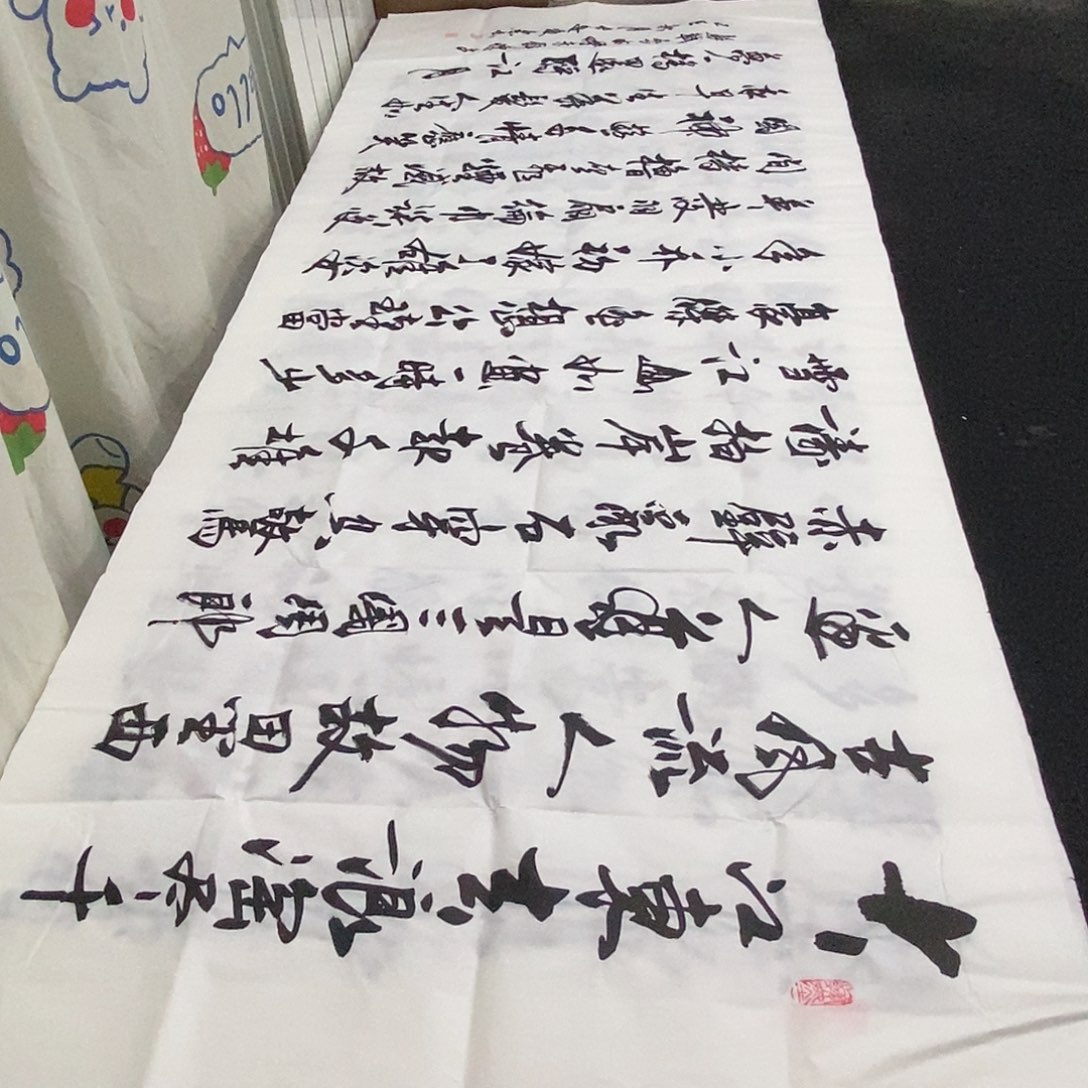 大江東去浪淘盡千
古風流人物故壘西
邊人道是三國周郎
赤壁亂石穿空驚
濤拍岸卷起千堆
雪江山如畫一時多少
豪傑遙想公瑾當
年小喬初嫁了雄姿
英發羽扇綸巾談笑
間檣櫓灰飛煙滅故
國神遊多情應笑
我早生華髮人生如
夢一尊還酹江月